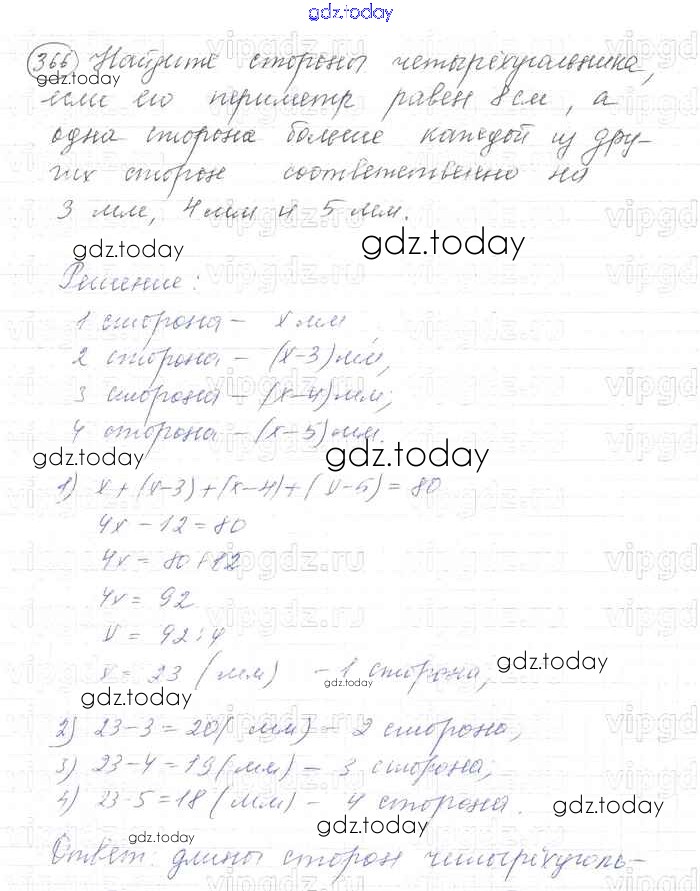 gdz.today
366) Найдите стороны четырёхугольника,
gdz.today
если его периметр равен 8 см, а
одна сторона больше каждой из дру-
гих сторон соответственно на
3 мм, 4 мм и 5 мм.
gdz.today
gdz.today
Решение:
1 сторона – x мм,
2 сторона – (x-3) мм,
3 сторона – (x-4) мм;
4 сторона – (x-5) мм.
gdz.today
gdz.today
1) x + (x-3) + (x-4) + (x-5) = 80
4x - 12 = 80
4x = 80 + 12
4x = 92
x = 92 : 4
x = 23 (мм) – 1 сторона,
gdz.today
gdz.today
gdz.today
2) 23-3=20 (мм) – 2 сторона,
3) 23-4=19 (мм) – 3 сторона;
4) 23-5=18 (мм) – 4 сторона.
gdz.today
gdz.today
gdz.today
Ответ: длины сторон четырёхуголь-